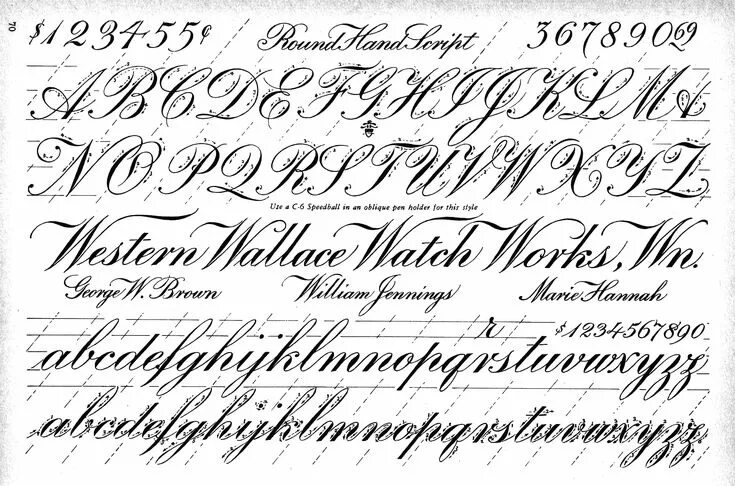 70
$123455¢ Round Hand Script 36789069
ABCDEFGHIJJKLM&
NOPQRSTUVWXYZ
Use a C-6 Speedball in an oblique pen holder for this style
Western Wallace Watch Works, Wn.
George W. Brown William Jennings Marie Hannah
r $1234567890
abcdefghijklmnopqrstuvwxyzz
abcdefghijklmnopqrstuvwxyzz